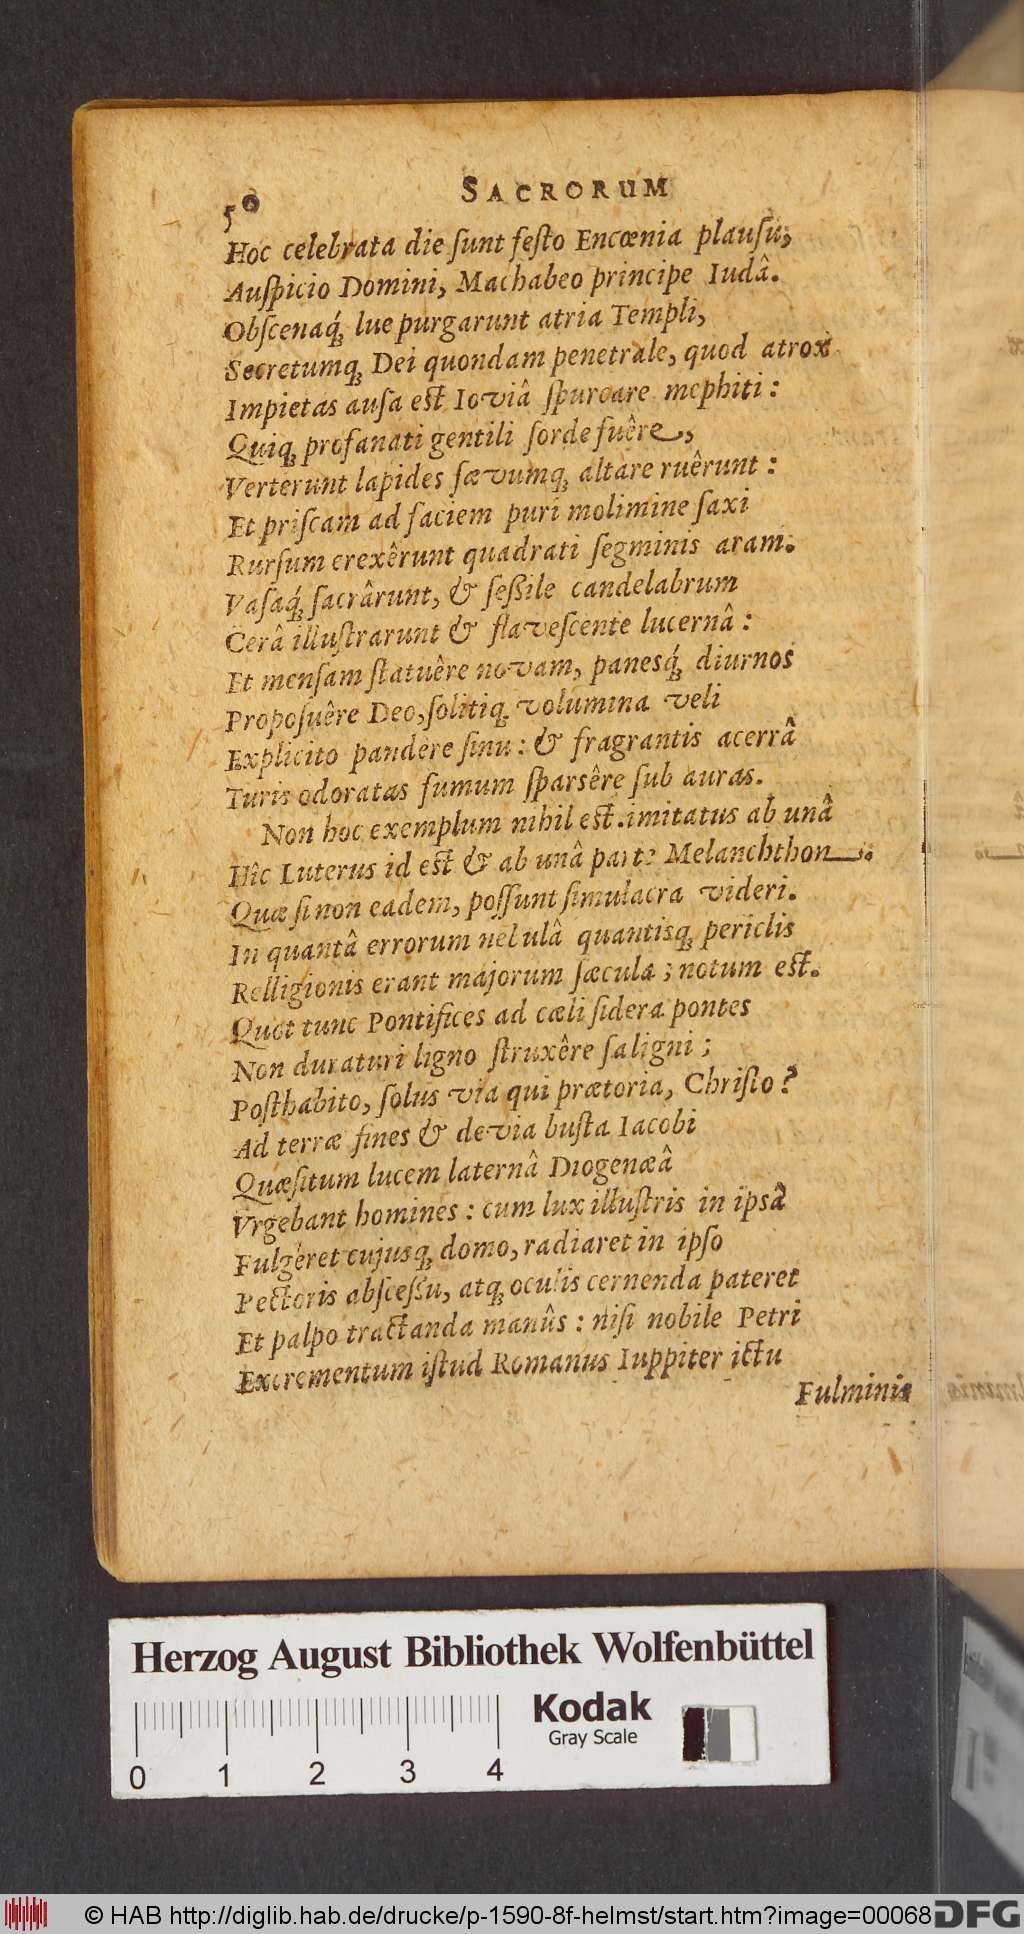 50 SACRORUM
Hoc celebrata die ſunt feſto Encœnia plauſu,
Auſpicio Domini, Machabeo principe Iudâ.
Obſcenaq́ꝫ lue purgarunt atria Templi,
Secretumqꝫ Dei quondam penetrale, quod atrox
Impietas auſa eſt Ioviâ ſpurcare mephiti:
Quiqꝫ profanati gentili ſorde fuêre,
Verterunt lapides ſævumqꝫ altare ruêrunt:
Et priſcam ad faciem puri molimine ſaxi
Rurſum erexêrunt quadrati ſegminis aram.
Vaſaq́ꝫ ſacrârunt, & ſeßile candelabrum
Cerâ illuſtrarunt & flaveſcente lucernâ:
Et menſam ſtatuêre novam, panesq́ꝫ diurnos
Propoſuêre Deo, ſolitiqꝫ volumina veli
Explicito pandere ſinu: & fragrantis acerrâ
Turis odoratas fumum ſparsêre ſub auras.
Non hoc exemplum nihil eſt imitatus ab unâ
Hîc Luterus id eſt & ab unâ parte Melanchthon.
Quæ ſi non eadem, poſſunt ſimulacra videri.
In quantâ errorum nebulâ quantisqꝫ periclis
Relligionis erant majorum ſæcula; notum eſt.
Quot tunc Pontifices ad cæli ſidera pontes
Non duraturi ligno ſtruxêre ſaligni;
Poſthabito, ſolus via qui prætoria, Chriſto?
Ad terræ fines & devia buſta Iacobi
Quæſitum lucem laternâ Diogenæâ
Vrgebant homines: cum lux illuſtris in ipsâ
Fulgeret cujusqꝫ domo, radiaret in ipſo
Pectoris abſceſſu, atqꝫ oculis cernenda pateret
Et palpo tractanda manûs: niſi nobile Petri
Excrementum iſtud Romanus Iuppiter ictu
Fulminis
Herzog August Bibliothek Wolfenbüttel
Kodak
Gray Scale
0 1 2 3 4
© HAB http://diglib.hab.de/drucke/p-1590-8f-helmst/start.htm?image=00068
DFG